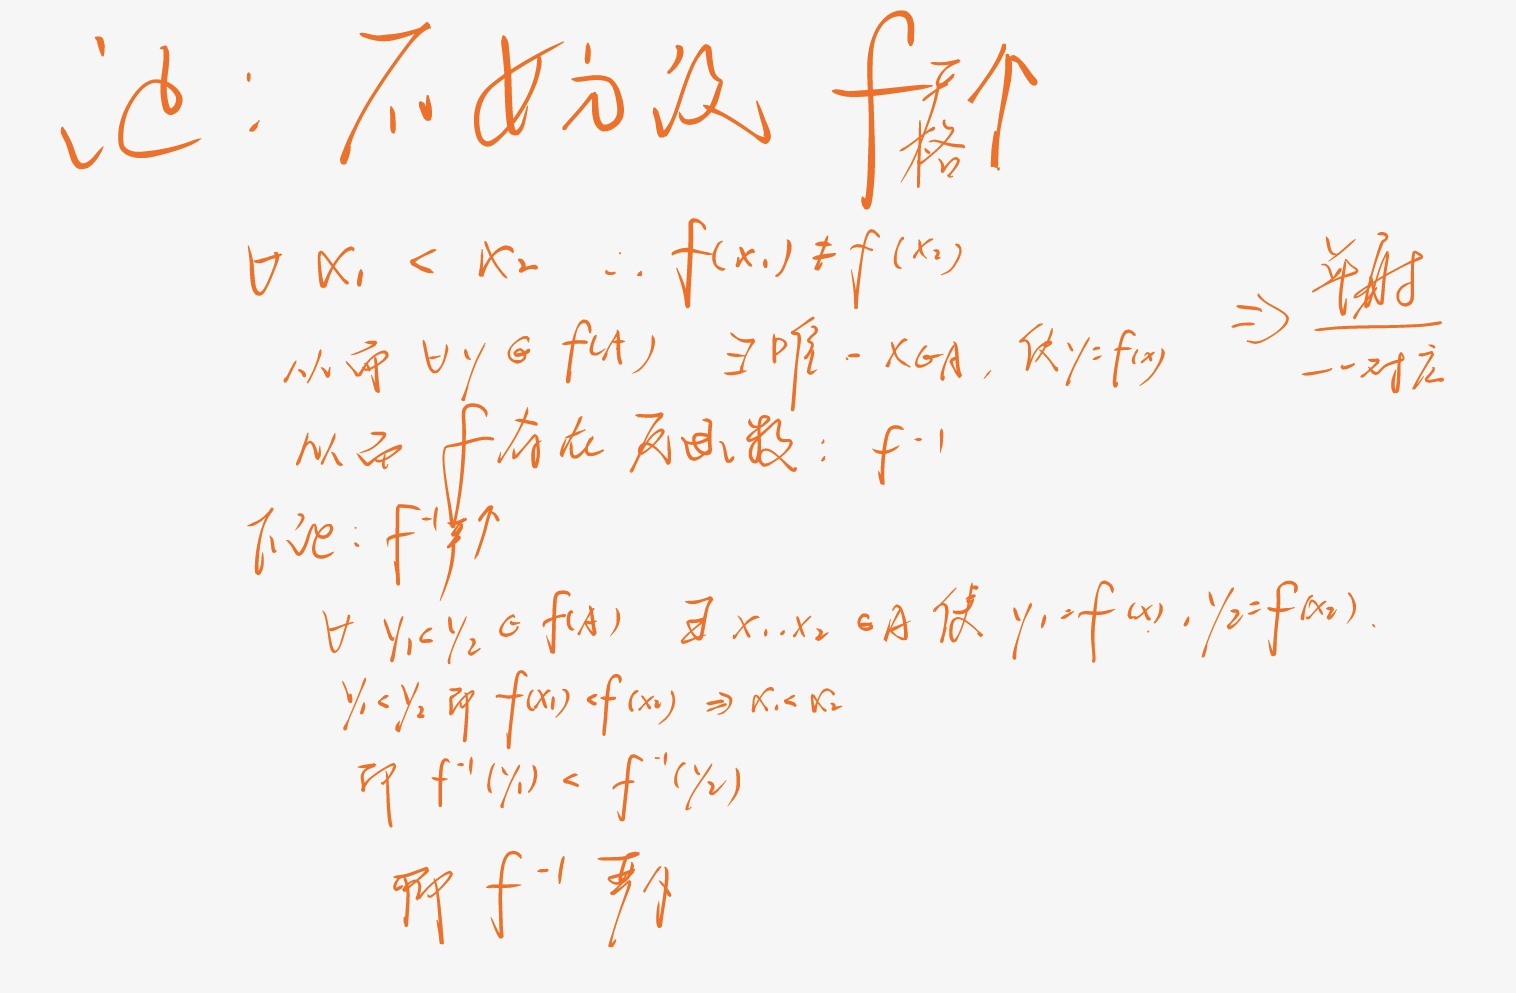 证：不妨设 f严格↑
∀ x₁ < x₂ ∴ f(x₁) ≠ f(x₂)
⇒ 单射
一一对应
从而 ∀y∈f(A) ∃唯一 x∈A，使y=f(x)
从而 f存在反函数：f⁻¹
下证：f⁻¹严↑
∀ y₁<y₂∈f(A) ∃ x₁、x₂∈A 使 y₁=f(x)，y₂=f(x₂).
y₁<y₂ 即 f(x₁)<f(x₂) ⇒ x₁<x₂
即 f⁻¹(y₁) < f⁻¹(y₂)
即 f⁻¹ 严↑